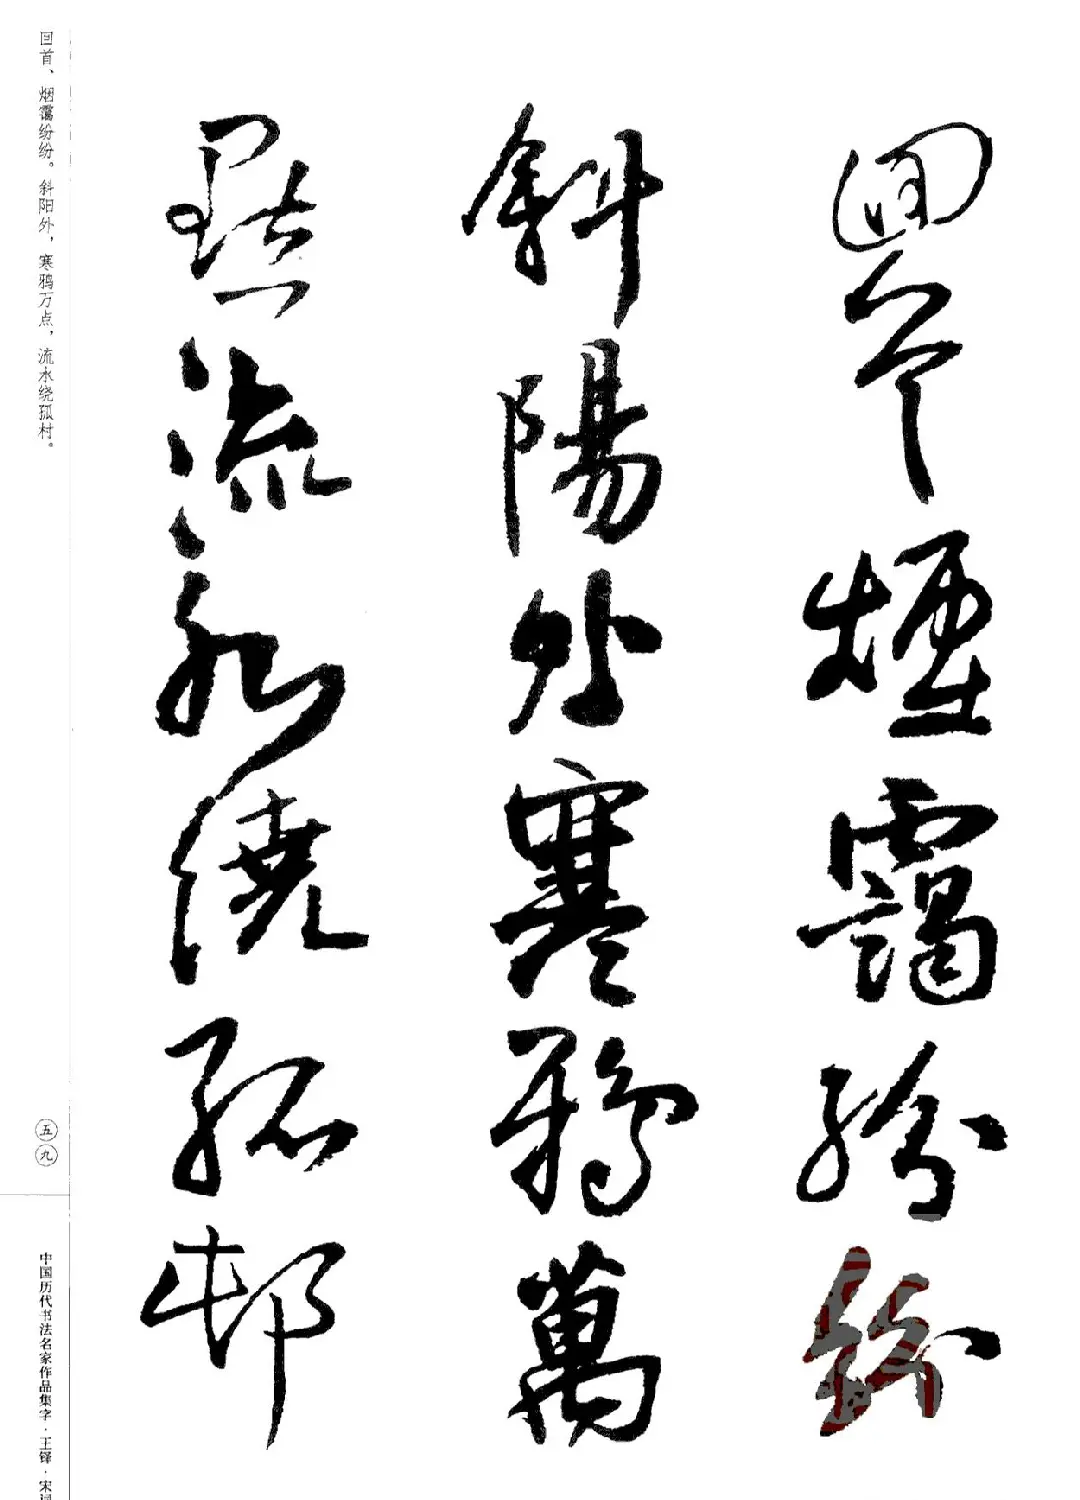 迴首煙靄紛紛
斜陽外寒鴉萬
點流水繞孤邨
回首、烟霭纷纷。斜阳外，寒鸦万点，流水绕孤村。
五九
中国历代书法名家作品集字·王铎·宋词